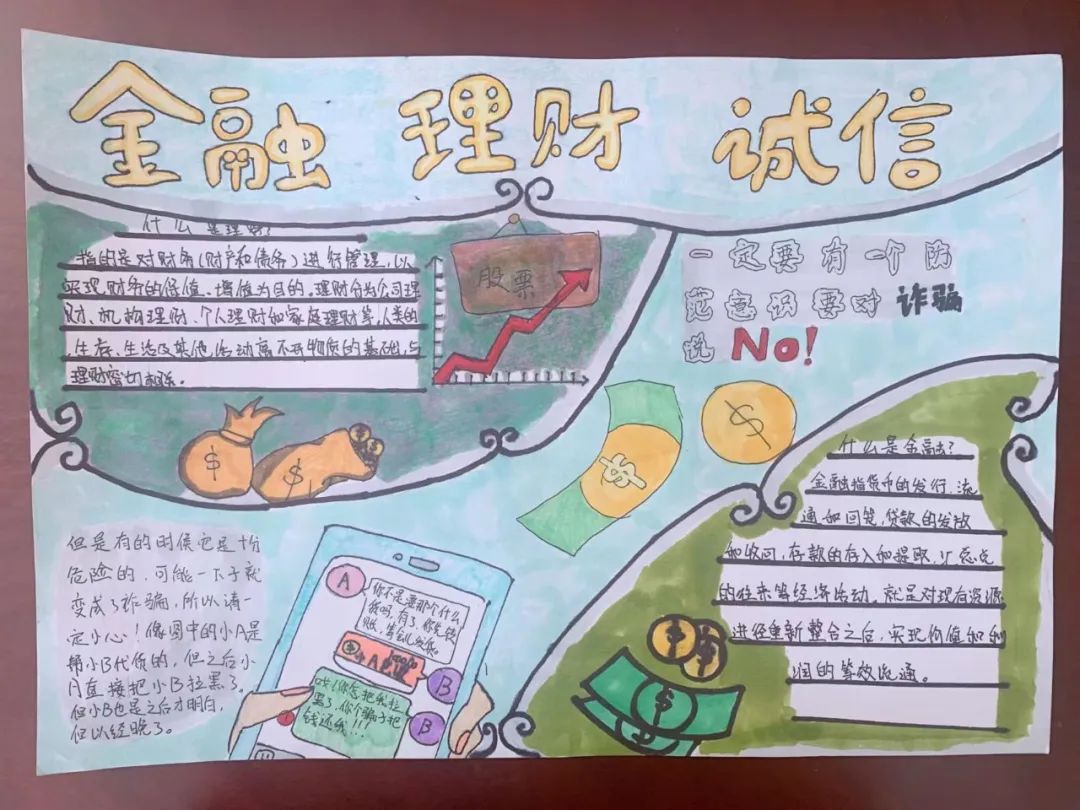 金融 理财 诚信
什么是理财?
指的是对财务(财产和债务)进行管理,以
实现财务的保值、增值为目的。理财分为公司理
财、机构理财、个人理财和家庭理财等,人类的
生存、生活及其他活动离不开物质的基础,与
理财密切相关。
股票
一定要有一个防
范意识要对诈骗
说 NO!
什么是金融?
金融指货币的发行、流
通和回笼,贷款的发放
和收回,存款的存入和提取,汇兑
的往来等经济活动。就是对现有资源
进行重新整合之后,实现价值和利
润的等效流通。
但是有的时候它是十分
危险的,可能一下子就
变成了诈骗,所以请一
定小心!像图中的小A是
帮小B代货的,但之后小
A直接把小B拉黑了。
但小B也是之后才明白,
但以经晚了。
A
你不是要那个什么
货吗,有了,你先
账,等会儿发货。
B
哎!你怎把我拉
黑了,你个骗子把
钱还我!!!
B